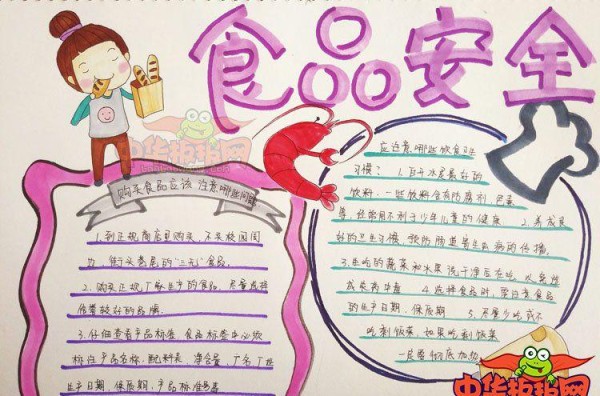 食品安全
中华板报网
购买食品应该注意哪些问题
1.到正规商店里购买,不买校园周
边、街头巷尾的“三无”食品。
2.购买正规厂家生产的食品,尽量选择
信誉较好的品牌。
3.仔细查看产品标签。食品标签中必须
标注:产品名称、配料表、净含量、厂名、厂址、
生产日期、保质期、产品标准号等
应注意哪些饮食卫生
习惯?1.白开水是最好的
饮料,一些饮料含有防腐剂、色素
等,经常饮用不利于少年儿童的健康
2.养成良
好的卫生习惯,预防肠道寄生虫病的传播。
3.生吃的蔬菜和水果洗干净后在吃,以免造
成农药中毒
4.选择食品时,要注意食品
的生产日期、保质期
5.尽量少吃或不
吃剩饭菜,如果吃剩饭菜
一定要彻底加热
中华板报网